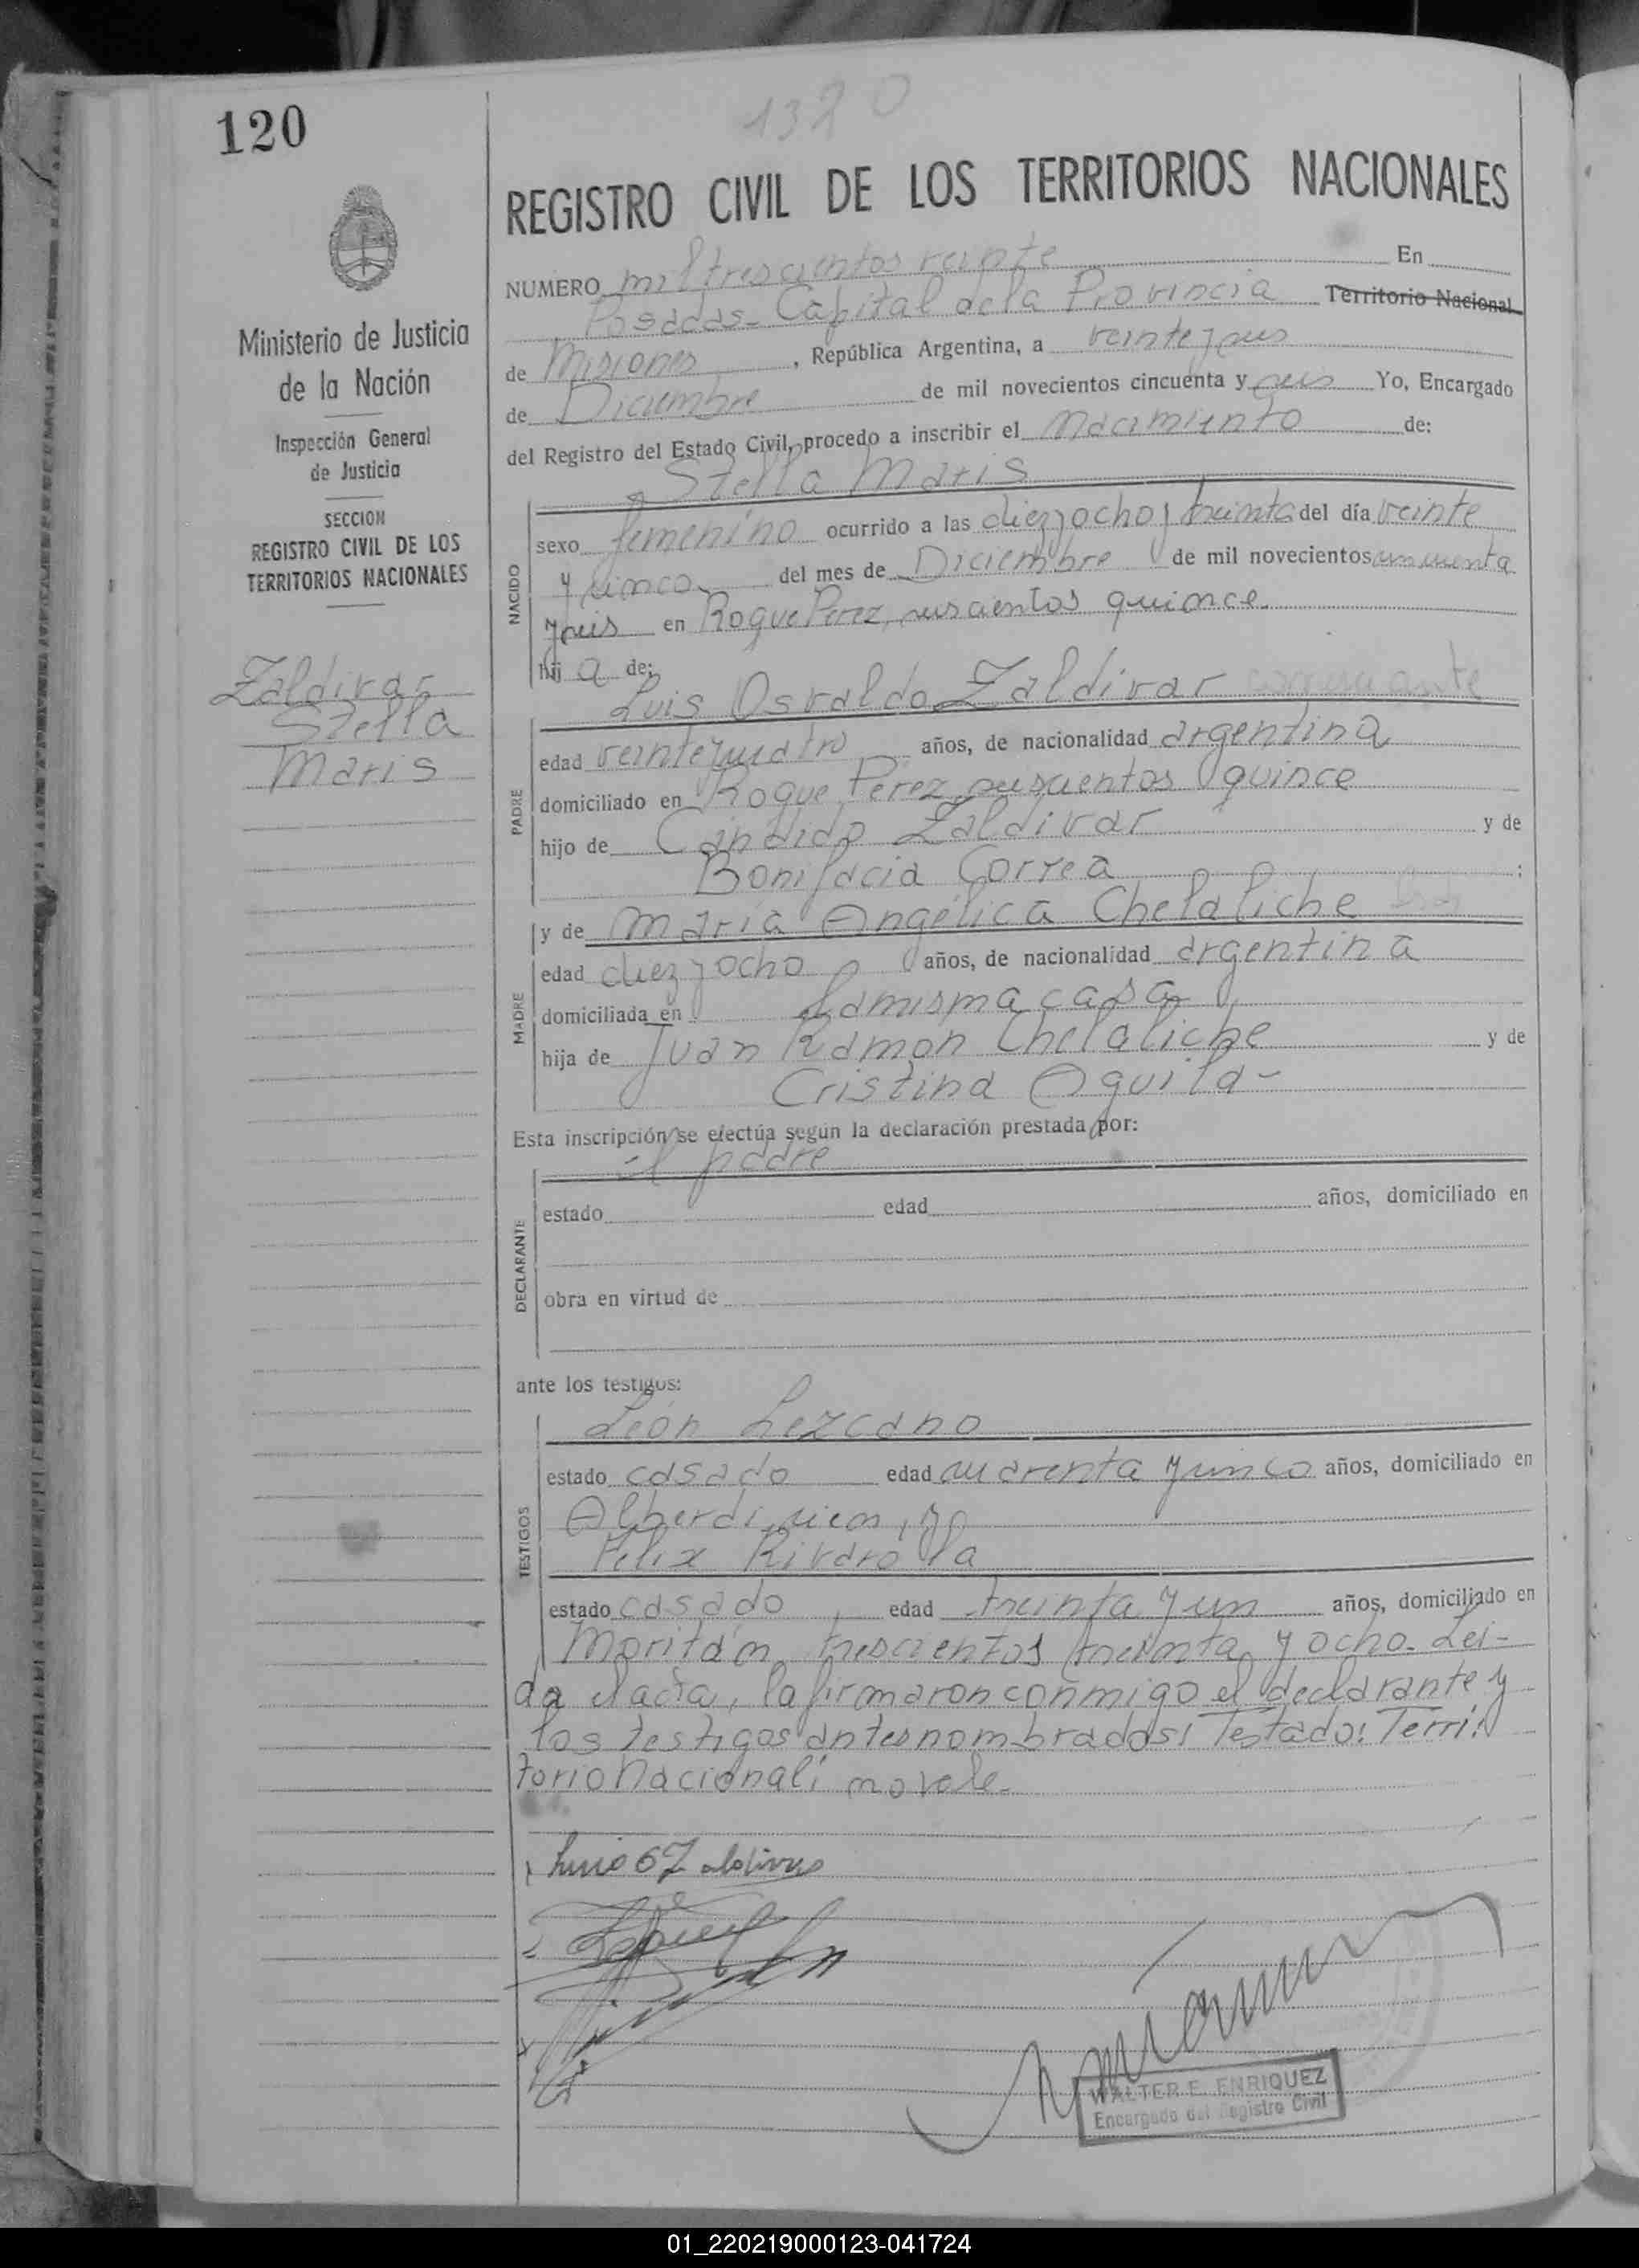 120
1320
REGISTRO CIVIL DE LOS TERRITORIOS NACIONALES
Ministerio de Justicia
de la Nación
Inspección General
de Justicia
SECCION
REGISTRO CIVIL DE LOS
TERRITORIOS NACIONALES
Zaldivar
Stella
Maris
NUMERO mil trescientos veinte En
Posadas - Capital de la Provincia Territorio Nacional
de Misiones, República Argentina, a veinte y seis
de Diciembre de mil novecientos cincuenta y seis Yo, Encargado
del Registro del Estado Civil, procedo a inscribir el nacimiento de:
Stella Maris
NACIDO
sexo femenino ocurrido a las diez y ocho y treinta del día veinte
y cinco del mes de Diciembre de mil novecientos cincuenta
y seis en Roque Perez, seiscientos quince
hij a de:
Luis Osvaldo Zaldivar
PADRE
edad veinte y cuatro años, de nacionalidad argentina
domiciliado en Roque Perez, seiscientos quince
hijo de Cándido Zaldivar y de
Bonifacia Correa ;
y de María Angélica Chelaliche
MADRE
edad diez y ocho años, de nacionalidad argentina
domiciliada en la misma casa
hija de Juan Ramon Chelaliche y de
Cristina Aguila -
Esta inscripción se efectúa según la declaración prestada por:
el padre
DECLARANTE
estado edad años, domiciliado en
obra en virtud de
ante los testigos:
León Lezcano
TESTIGOS
estado casado edad cuarenta y cinco años, domiciliado en
Alberdi
Felix Rivarola
estado casado edad treinta y un años, domiciliado en
Moritán, trescientos treinta y ocho. Leí-
da el acta, la firmaron conmigo el declarante y
los testigos antes nombrados: Testado: Terri-
torio Nacional: no vale.
WALTER E. ENRIQUEZ
Encargado del Registro Civil
01_220219000123-041724